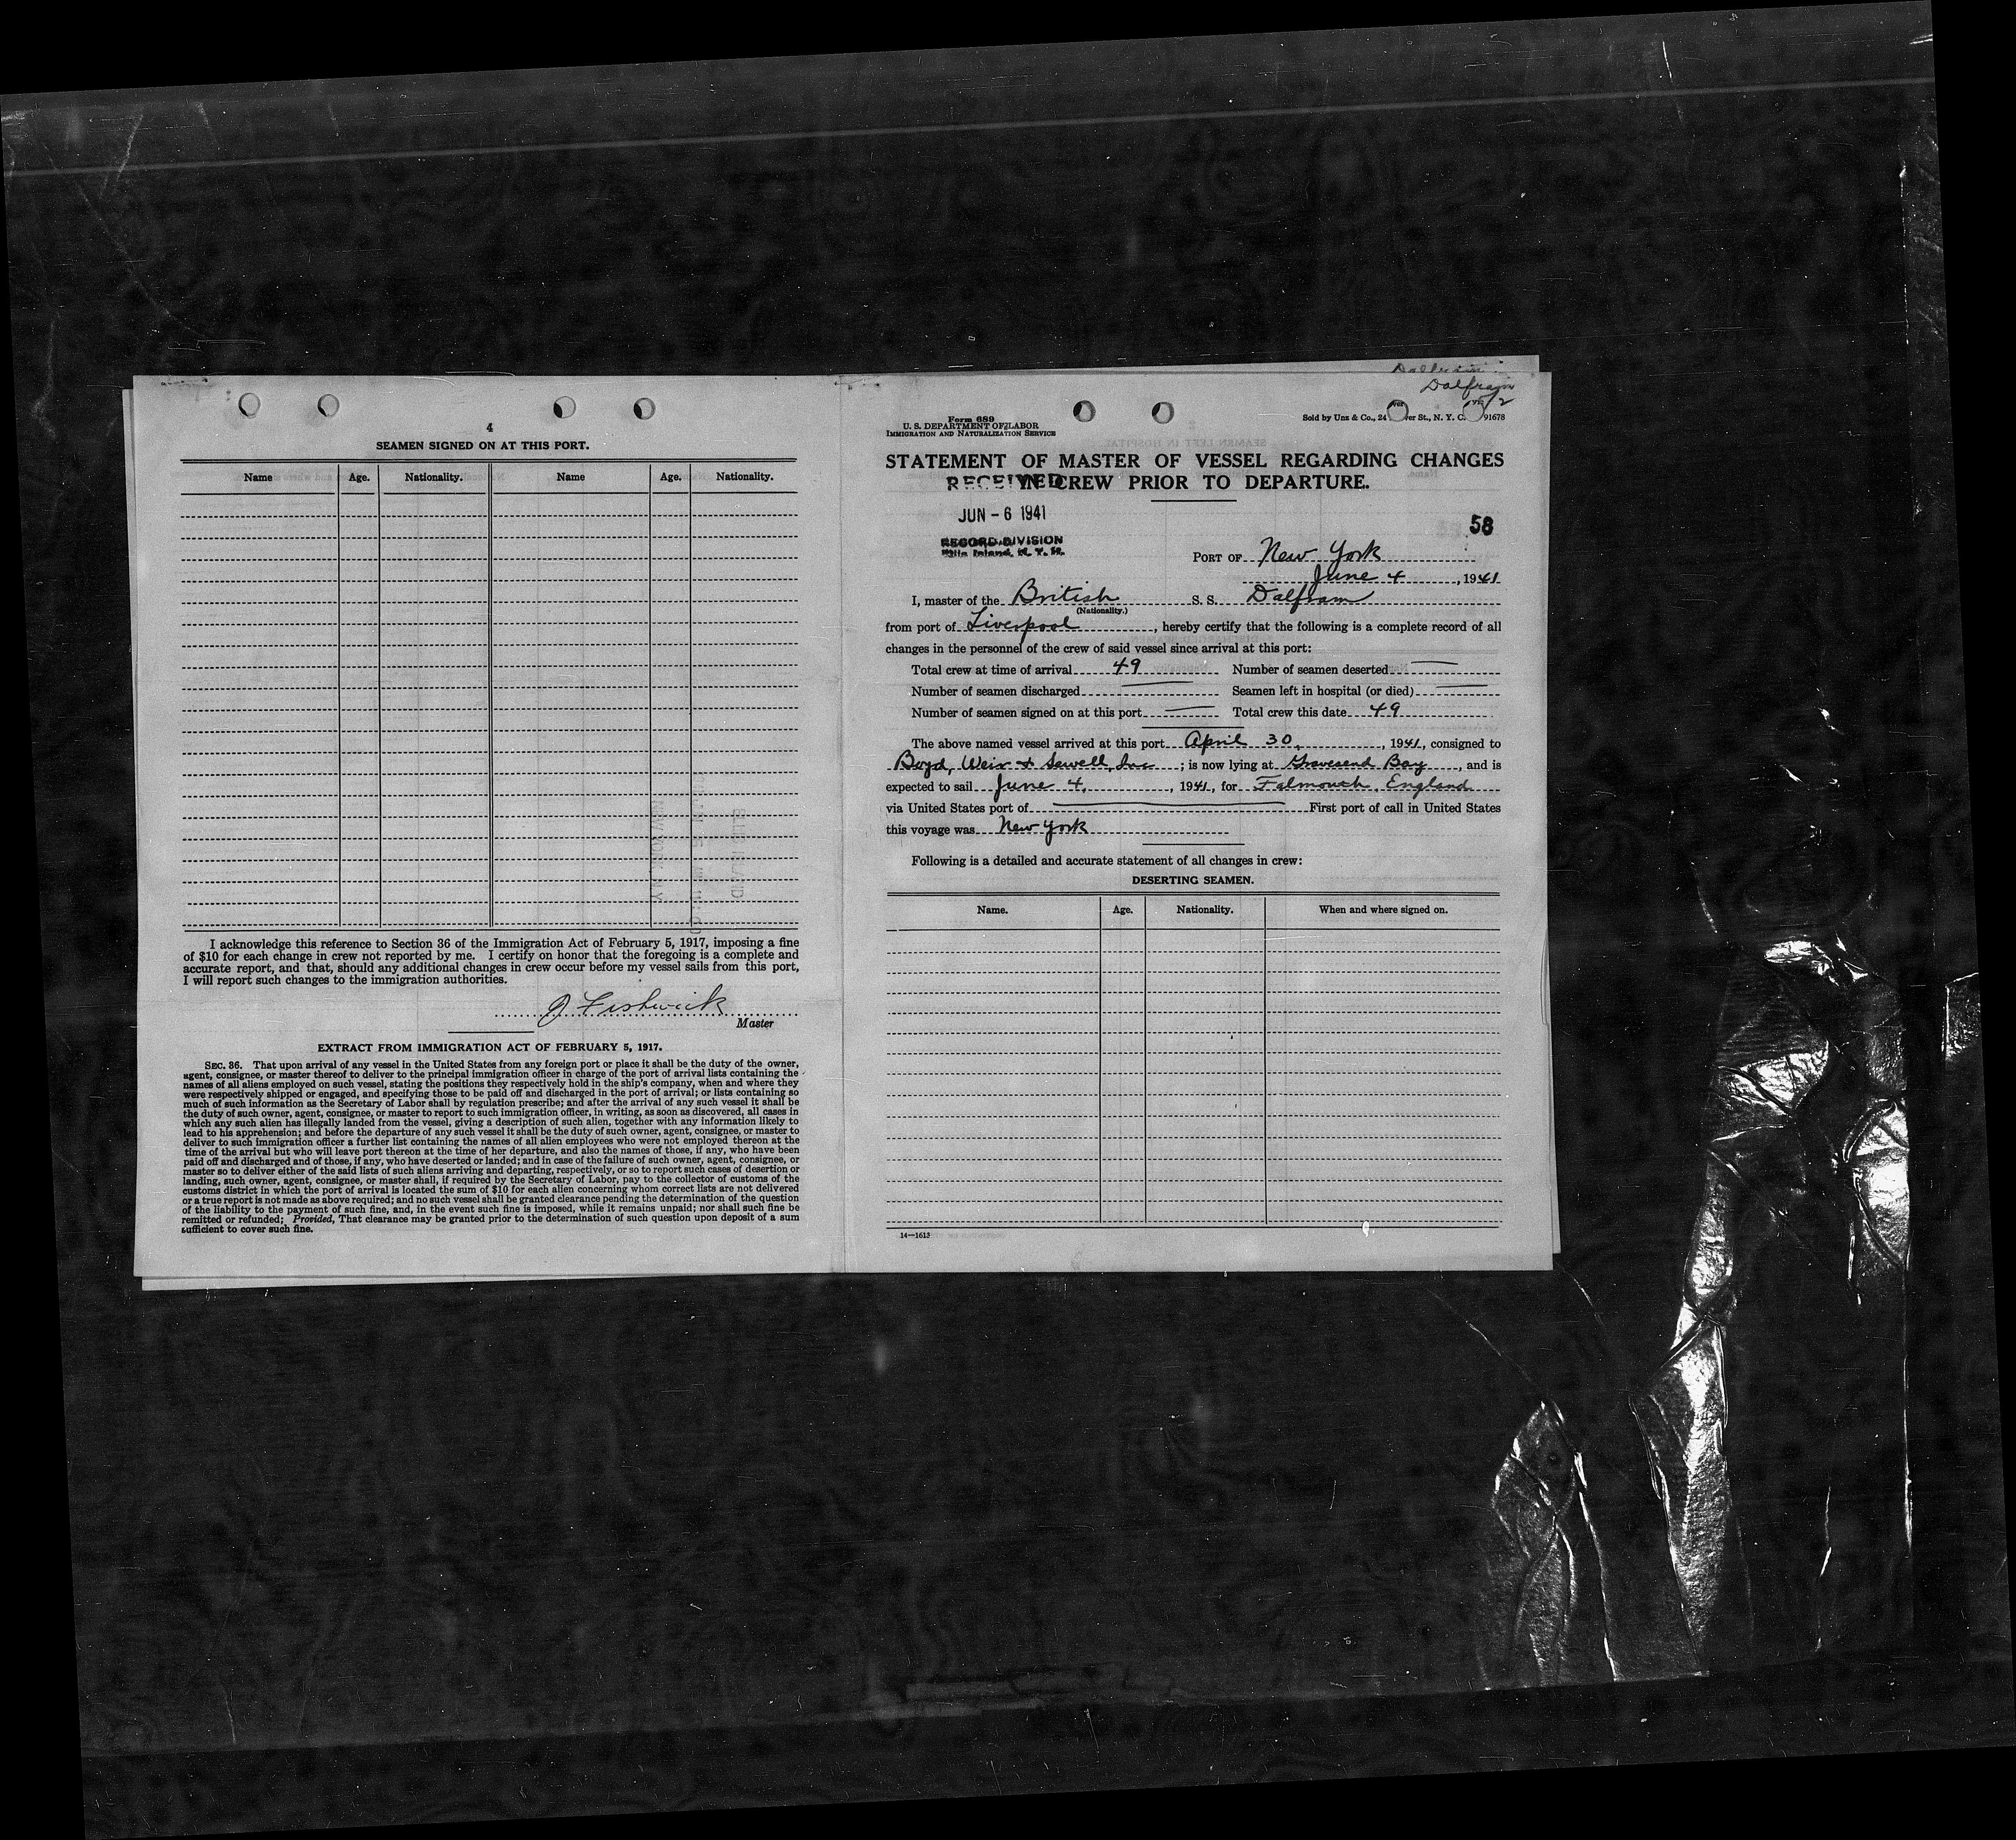 4
SEAMEN SIGNED ON AT THIS PORT.
Name Age. Nationality. Name Age. Nationality.
I acknowledge this reference to Section 36 of the Immigration Act of February 5, 1917, imposing a fine
of $10 for each change in crew not reported by me. I certify on honor that the foregoing is a complete and
accurate report, and that, should any additional changes in crew occur before my vessel sails from this port,
I will report such changes to the immigration authorities.
J Fishwick
Master
EXTRACT FROM IMMIGRATION ACT OF FEBRUARY 5, 1917.
SEC. 36. That upon arrival of any vessel in the United States from any foreign port or place it shall be the duty of the owner,
agent, consignee, or master thereof to deliver to the principal immigration officer in charge of the port of arrival lists containing the
names of all aliens employed on such vessel, stating the positions they respectively hold in the ship's company, when and where they
were respectively shipped or engaged, and specifying those to be paid off and discharged in the port of arrival; or lists containing so
much of such information as the Secretary of Labor shall by regulation prescribe; and after the arrival of any such vessel it shall be
the duty of such owner, agent, consignee, or master to report to such immigration officer, in writing, as soon as discovered, all cases in
which any such alien has illegally landed from the vessel, giving a description of such alien, together with any information likely to
lead to his apprehension; and before the departure of any such vessel it shall be the duty of such owner, agent, consignee, or master to
deliver to such immigration officer a further list containing the names of all alien employees who were not employed thereon at the
time of the arrival but who will leave port thereon at the time of her departure, and also the names of those, if any, who have been
paid off and discharged and of those, if any, who have deserted or landed; and in case of the failure of such owner, agent, consignee, or
master so to deliver either of the said lists of such aliens arriving and departing, respectively, or so to report such cases of desertion or
landing, such owner, agent, consignee, or master shall, if required by the Secretary of Labor, pay to the collector of customs of the
customs district in which the port of arrival is located the sum of $10 for each alien concerning whom correct lists are not delivered
or a true report is not made as above required; and no such vessel shall be granted clearance pending the determination of the question
of the liability to the payment of such fine, and, in the event such fine is imposed, while it remains unpaid; nor shall such fine be
remitted or refunded; Provided, That clearance may be granted prior to the determination of such question upon deposit of a sum
sufficient to cover such fine.
Dalfram
Dalfram
Form 689
U. S. DEPARTMENT OF LABOR
IMMIGRATION AND NATURALIZATION SERVICE
Sold by Unz & Co., 24 ver St., N. Y. C. 91678
STATEMENT OF MASTER OF VESSEL REGARDING CHANGES
IN CREW PRIOR TO DEPARTURE.
RECEIVED
JUN - 6 1941
RECORD DIVISION
Ellis Island, N. Y. H.
58
PORT OF New York
June 4, 1941
I, master of the British S. S. Dalfram
(Nationality.)
from port of Liverpool, hereby certify that the following is a complete record of all
changes in the personnel of the crew of said vessel since arrival at this port:
Total crew at time of arrival 49 Number of seamen deserted —
Number of seamen discharged — Seamen left in hospital (or died) —
Number of seamen signed on at this port — Total crew this date 49
The above named vessel arrived at this port April 30, 1941, consigned to
Boyd, Weir & Sewell, Inc; is now lying at Gravesend Bay, and is
expected to sail June 4, 1941, for Falmouth, England
via United States port of — First port of call in United States
this voyage was New York
Following is a detailed and accurate statement of all changes in crew:
DESERTING SEAMEN.
Name. Age. Nationality. When and where signed on.
14—1613